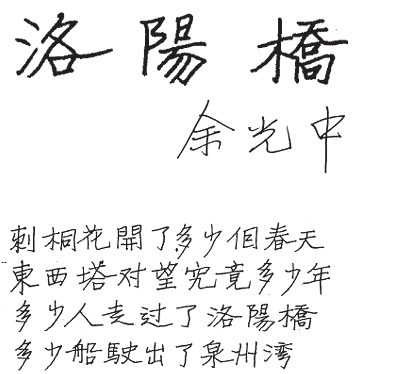 洛陽橋
余光中
刺桐花開了多少個春天
東西塔对望究竟多少年
多少人走过了洛陽橋
多少船駛出了泉州湾